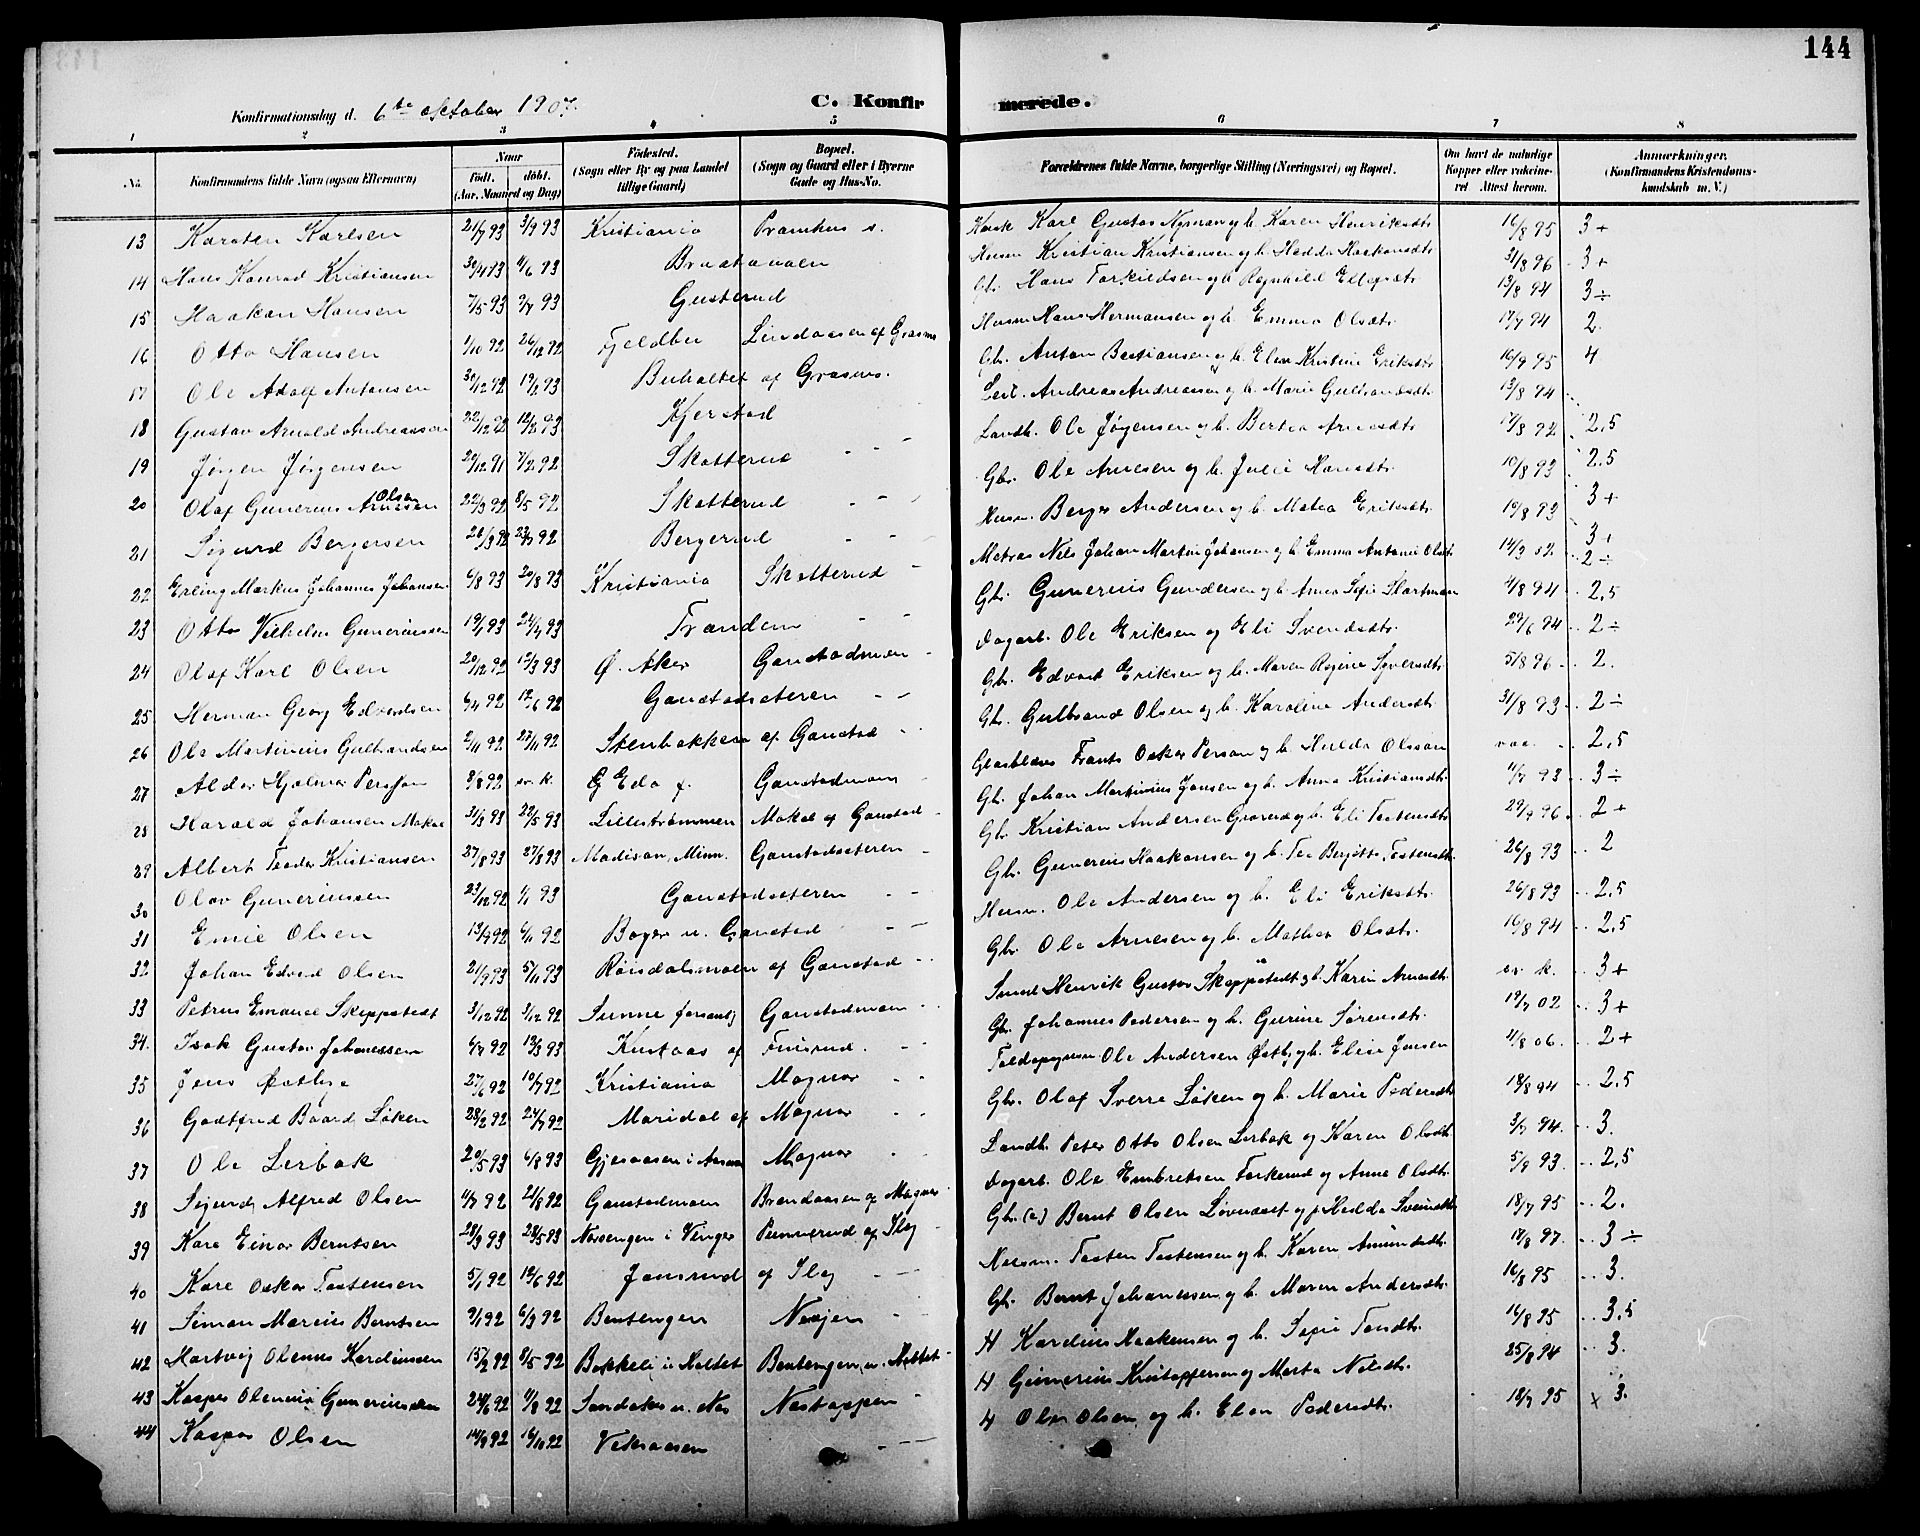 144
Konfirmationsdag d. 6te oktober 1907. C. Konfirmerede.
1 2 3 4 5 6 7 8
No. Konfirmandens fulde Navn (ogsaa Efternavn) Naar født. døbt. (Aar, Maaned og Dag) Fødested. (Sogn eller By og paa Landet tillige Gaard) Bopæl. (Sogn og Gaard eller i Byerne Gade og Hus-No. Forældrenes fulde Navne, borgerlige Stilling (Næringsvei) og Bopæl. Om havt de naturlige Kopper eller vakcineret. Attest herom. Anmærkninger. (Konfirmandens Kristendomskundskab m. V.)
13 Karsten Karlsen 21/7 93 3/9 93 Kristiania Karl Gustav Nyman og h. Karen Henriksdtr. 16/8 95 3+
14 Hans Konrad Kristiansen 30/4 93 4/6 93 Husm. Kristian Kristiansen og h. Hedda Haakonsdtr. 31/8 96 3+
15 Haakon Hansen 7/5 93 2/7 93 Gusterud Gbr. Hans Torkildsen og h. Ragnhild Ellefsdtr. 13/8 94 3÷
16 Otto Hansen 1/10 92 26/12 92 Fjeldbu Lindaasen af Grasmo Husm. Hans Hermansen og h. Emma Olsdtr. 17/7 94 2.
17 Ole Adolf Antonsen 30/12 92 19/2 93 Buholtet af Grasmo. Gbr. Anton Bastiansen og h. Elen Kristine Eriksdtr. 16/9 95 4
18 Gustav Arnold Andreassen 22/12 92 12/2 93 Kjerstad Andreas Andreassen og h. Marie Gulbrandsdtr. 13/8 94
19 Jørgen Jørgensen 29/12 91 7/2 92 Skotterud Landh. Ole Jørgensen og h. Bertea Arnesdtr. 17/8 92 2,5
20 Olaf Gunerius Arnesen Olsen 22/3 92 8/5 92 Skotterud Gbr. Ole Arnesen og h. Julie Hansdtr. 10/8 93 2.5
21 Sigurd Bergersen 26/3 92 Bergerud Husm. Berger Andersen og h. Matea Eriksdtr. 10/8 93 3+
22 Erling Markus Johannes Johansen 6/8 93 20/8 93 Kristiania Skotterud Nils Johan Martin Johansen og h. Emma Antonie Olsdtr. 14/3 02 3+ 2÷
23 Otto Vilhelm Guneriussen 19/7 93 Trandem Gbr. Gunerius Gundersen og h. Anna Sofie Hartman 4/8 94 2,5
24 Olaf Karl Olsen 20/12 92 12/3 93 Ø. Aker Ganstadmoen Dagarb. Ole Eriksen og Eli Svendsdtr. 29/6 94 2÷
25 Herman Georg Edvardsen 6/4 92 12/6 92 Ganstadsæteren Gbr. Edvart Eriksen og h. Maren Regine Syversdtr. 5/8 96 2.
26 Ole Martinius Gulbrandsen 2/11 92 27/11 92 Stenbakken af Ganstad Gbr. Gulbrand Olsen og h. Karoline Andersdtr. 31/8 93 2÷
27 Aldor Hjalmar Persson 8/8 92 sv. k. Eda f. Ganstadmoen Glasblæser Frants Oskar Person og h. Hulda Olsson vac. 2,5
28 Harald Johansen Mokal 31/3 93 22/5 93 Lillestrømmen Mokal af Ganstad Gbr. Johan Martinius Jansen og h. Anna Kristiansdtr. 4/7 93 3÷
29 Albert Teodor Kristiansen 27/8 93 Madison, Minn. Ganstadsæteren Gbr. Kristian Andersen og h. Eli Tostensdtr. 29/9 96 2+
30 Olav Guneriussen 23/12 92 93 Ganstadsæteren Gbr. Gunerius Haakonsen og h. Tea Tostensdtr. 26/8 93 2
31 Emil Olsen 13/9 92 6/11 92 Boger u. Ganstad Husm. Ole Andersen og h. Eli Eriksdtr. 26/8 93 2,5
32 Johan Edvard Olsen 21/9 93 5/11 93 Røisdalsmoen af Ganstad Gbr. Ole Arnesen og h. Mathea Olsdtr. 16/8 94 2,5
33 Petrus Emanuel Skeppstedt 3/12 92 3/12 92 Sunne forsaml. Ganstadmoen Smed Henrik Gustav Skeppstedt og h. Karin Arnesdtr. sv. k. 3+
34. Isak Gustav Johannessen 92 12/3 93 af Finsrud. Gbr. Johannes Pedersen og h. Gurine Sørensdtr. 19/7 02 3+
35 Jens Østbye 27/6 92 10/7 92 Kristiania Magnor Ole Andersen Østby og h. Elise Jansen 4/8 06. 2+
36 Godtfred Baard Løken 28/2 92 24/7 92 Maridal af Magnor Gbr. Olaf Sverre Løken og h. Marie Pedersdtr. 18/8 94 2,5
37 Ole Lerbak 20/5 93 6/8 93 Gjesaasen i Aasnes Magnor Landh. Peter Otto Olsen Lerbak og Karen Olsdtr. 94. 3.
38 Sigurd Alfred Olsen 4/7 92 21/8 92 Ganstadmoen Brandaasen af Magnor Dagarb. Ole Embretsen Torkerud og Anne Olsdtr. 5/9 93. 2,5
39 Kare Einar Berntsen 28/3 93 28/5 93 Norsengen i Vinger Pennerud af Sløj Gbr. (e) Bernt Olsen og f. Hedda Svensdtr. 18/7 95 2.
40 Kare Oskar Tostensen 5/1 92 12/6 92 Jansrud af Sløj Tosten Tostensen og h. Karen Amundsdtr. 17/8 97. 3÷
41 Simon Marius Berntsen 9/1 92 6/3 92 Bentengen Gbr. Bernt Johannessen og h. Maren Andersdtr. 16/8 95 3.
42 Hartvig Olenus Kardiussen 15/2 92 8/5 92 Bakkeli u. Holtet Bentengen u. Holtet H Kardius Haakensen og h. Sofie Tordtr. 16/8 95 3,5
43 Kaspar Olenius Guneriussen 24/6 92 92 Sandaker u. Nas Nastoppen H Gunerius Kristoffersen og Marta Nilsdtr. 25/8 94 3.
44 Kaspar Olsen 14/9 92 16/10 92 Viksaasen H Ole Olsen og h. Elen Pedersdtr. 18/7 95 x 3.